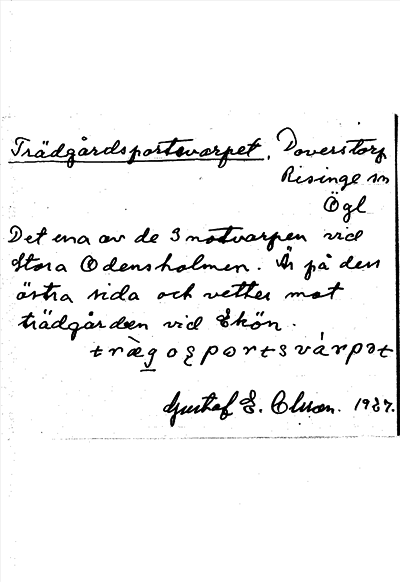 Trädgårdsportsvarpet, Doverstorp
Risinge sn
Ögl
Det ena av de 3 notvarpen vid
Stora Odensholmen. Är på den
östra sida och vetter mot
trädgården vid Ekön.
Gustaf E. Olsson. 1927.